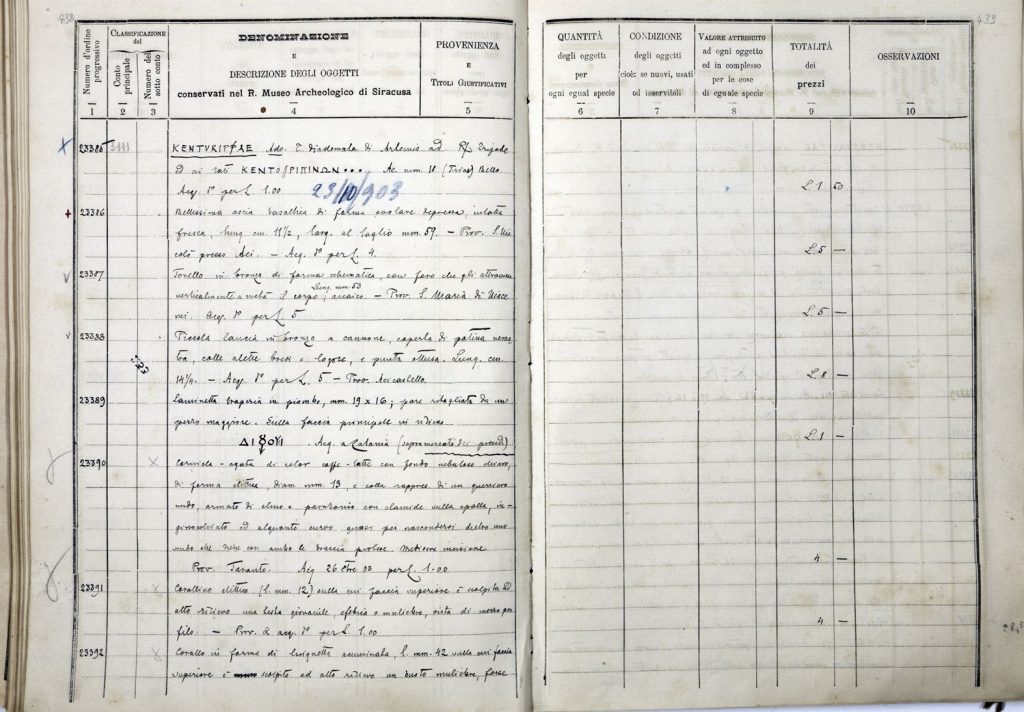 438
Numero d'ordine progressivo
CLASSIFICAZIONE del
Conto principale
Numero del sotto conto
DENOMINAZIONE
E
DESCRIZIONE DEGLI OGGETTI
conservati nel R. Museo Archeologico di Siracusa
PROVENIENZA
E
TITOLI GIUSTIFICATIVI
1 2 3 4 5
23385
KENTVRIPAE Ado. T. diademata di Artemis ad R/ Tripode
ed ai lati ΚΕΝΤΟΡΙΠΙΝΩΝ... Ae. mm. 18 Bello.
Acq. per L. 1.00 23/10/903
23386
Bellissima ascia basaltica di forma ovolare depressa, intatta
fresca, lung. cm. 11 1/2, larg. al taglio mm. 59. — Prov. S. Nic
colò presso Aci. — Acq. per L. 4.
23387
Torello in bronzo di forma schematica, con foro che gli attraversa
Lung. mm. 53
verticalmente a metà il corpo; arcaico — Prov. S. Maria di Nisce
mi. Acq. per L. 5
23388
Piccola lancia in bronzo a cannone, coperta di patina neras
tra, colle alette brevi e logore, e punta ottusa. Lung. cm.
14 1/4. — Acq. per L. 5 — Prov. Acicastello.
23389
Laminetta in piombo, mm. 19 x 16; pare ritagliata da un
pezzo maggiore. Sulla faccia principale in rilievo
Acq. a Catania (sopramercato dei precedi)
23390
Corniola-agata di color caffe-latte con fondo nebuloso chiaro,
di forma elittica, diam. mm. 13, e colla rappres. di un guerriero
nudo, armato di elmo e parazonio con clamide sulla spalla, in-
ginocchiato ed alquanto curvo quasi per nascondersi dietro uno
scudo che tiene con ambo le braccia protese. Mediocre incisione
Prov. Taranto. Acq. 26 Obre 03 per L. 1.00
23391
Corallino elittico (l. mm. 12) sulla cui faccia superiore è scolpita ad
alto rilievo una testa giovanile, efebica o muliebre, vista di mezzo pro
filo. — Prov. e acq. per L. 1.00
23392
Corallo in forma di linguetta acuminata, l. mm. 42 sulla cui faccia
superiore è scolpito ad alto rilievo un busto muliebre, forse
439
QUANTITÀ
degli oggetti
per
ogni egual specie
CONDIZIONE
degli oggetti
cioè: se nuovi, usati
od inservibili
VALORE ATTRIBUITO
ad ogni oggetto
ed in complesso
per le cose
di eguale specie
TOTALITÀ
dei
prezzi
OSSERVAZIONI
6 7 8 9 10
L. 1 50
L. 5 —
L. 5 —
L. 8 —
L. 1 —
4 —
4 —